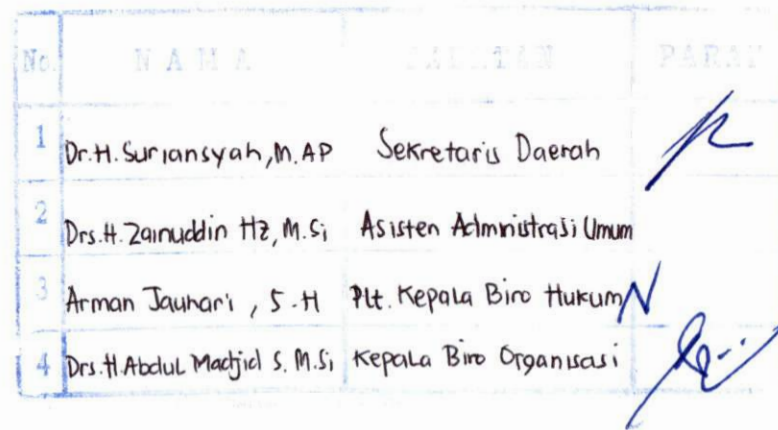 No. N A M A JABATAN PARAF
1 Dr.H. Suriansyah, M. AP Sekretaris Daerah
2 Drs.H. Zainuddin HZ, M.Si Asisten Administrasi Umum
3 Arman Jauhari, S.H Plt. Kepala Biro Hukum
4 Drs.H.Abdul Madjid S. M.Si Kepala Biro Organisasi